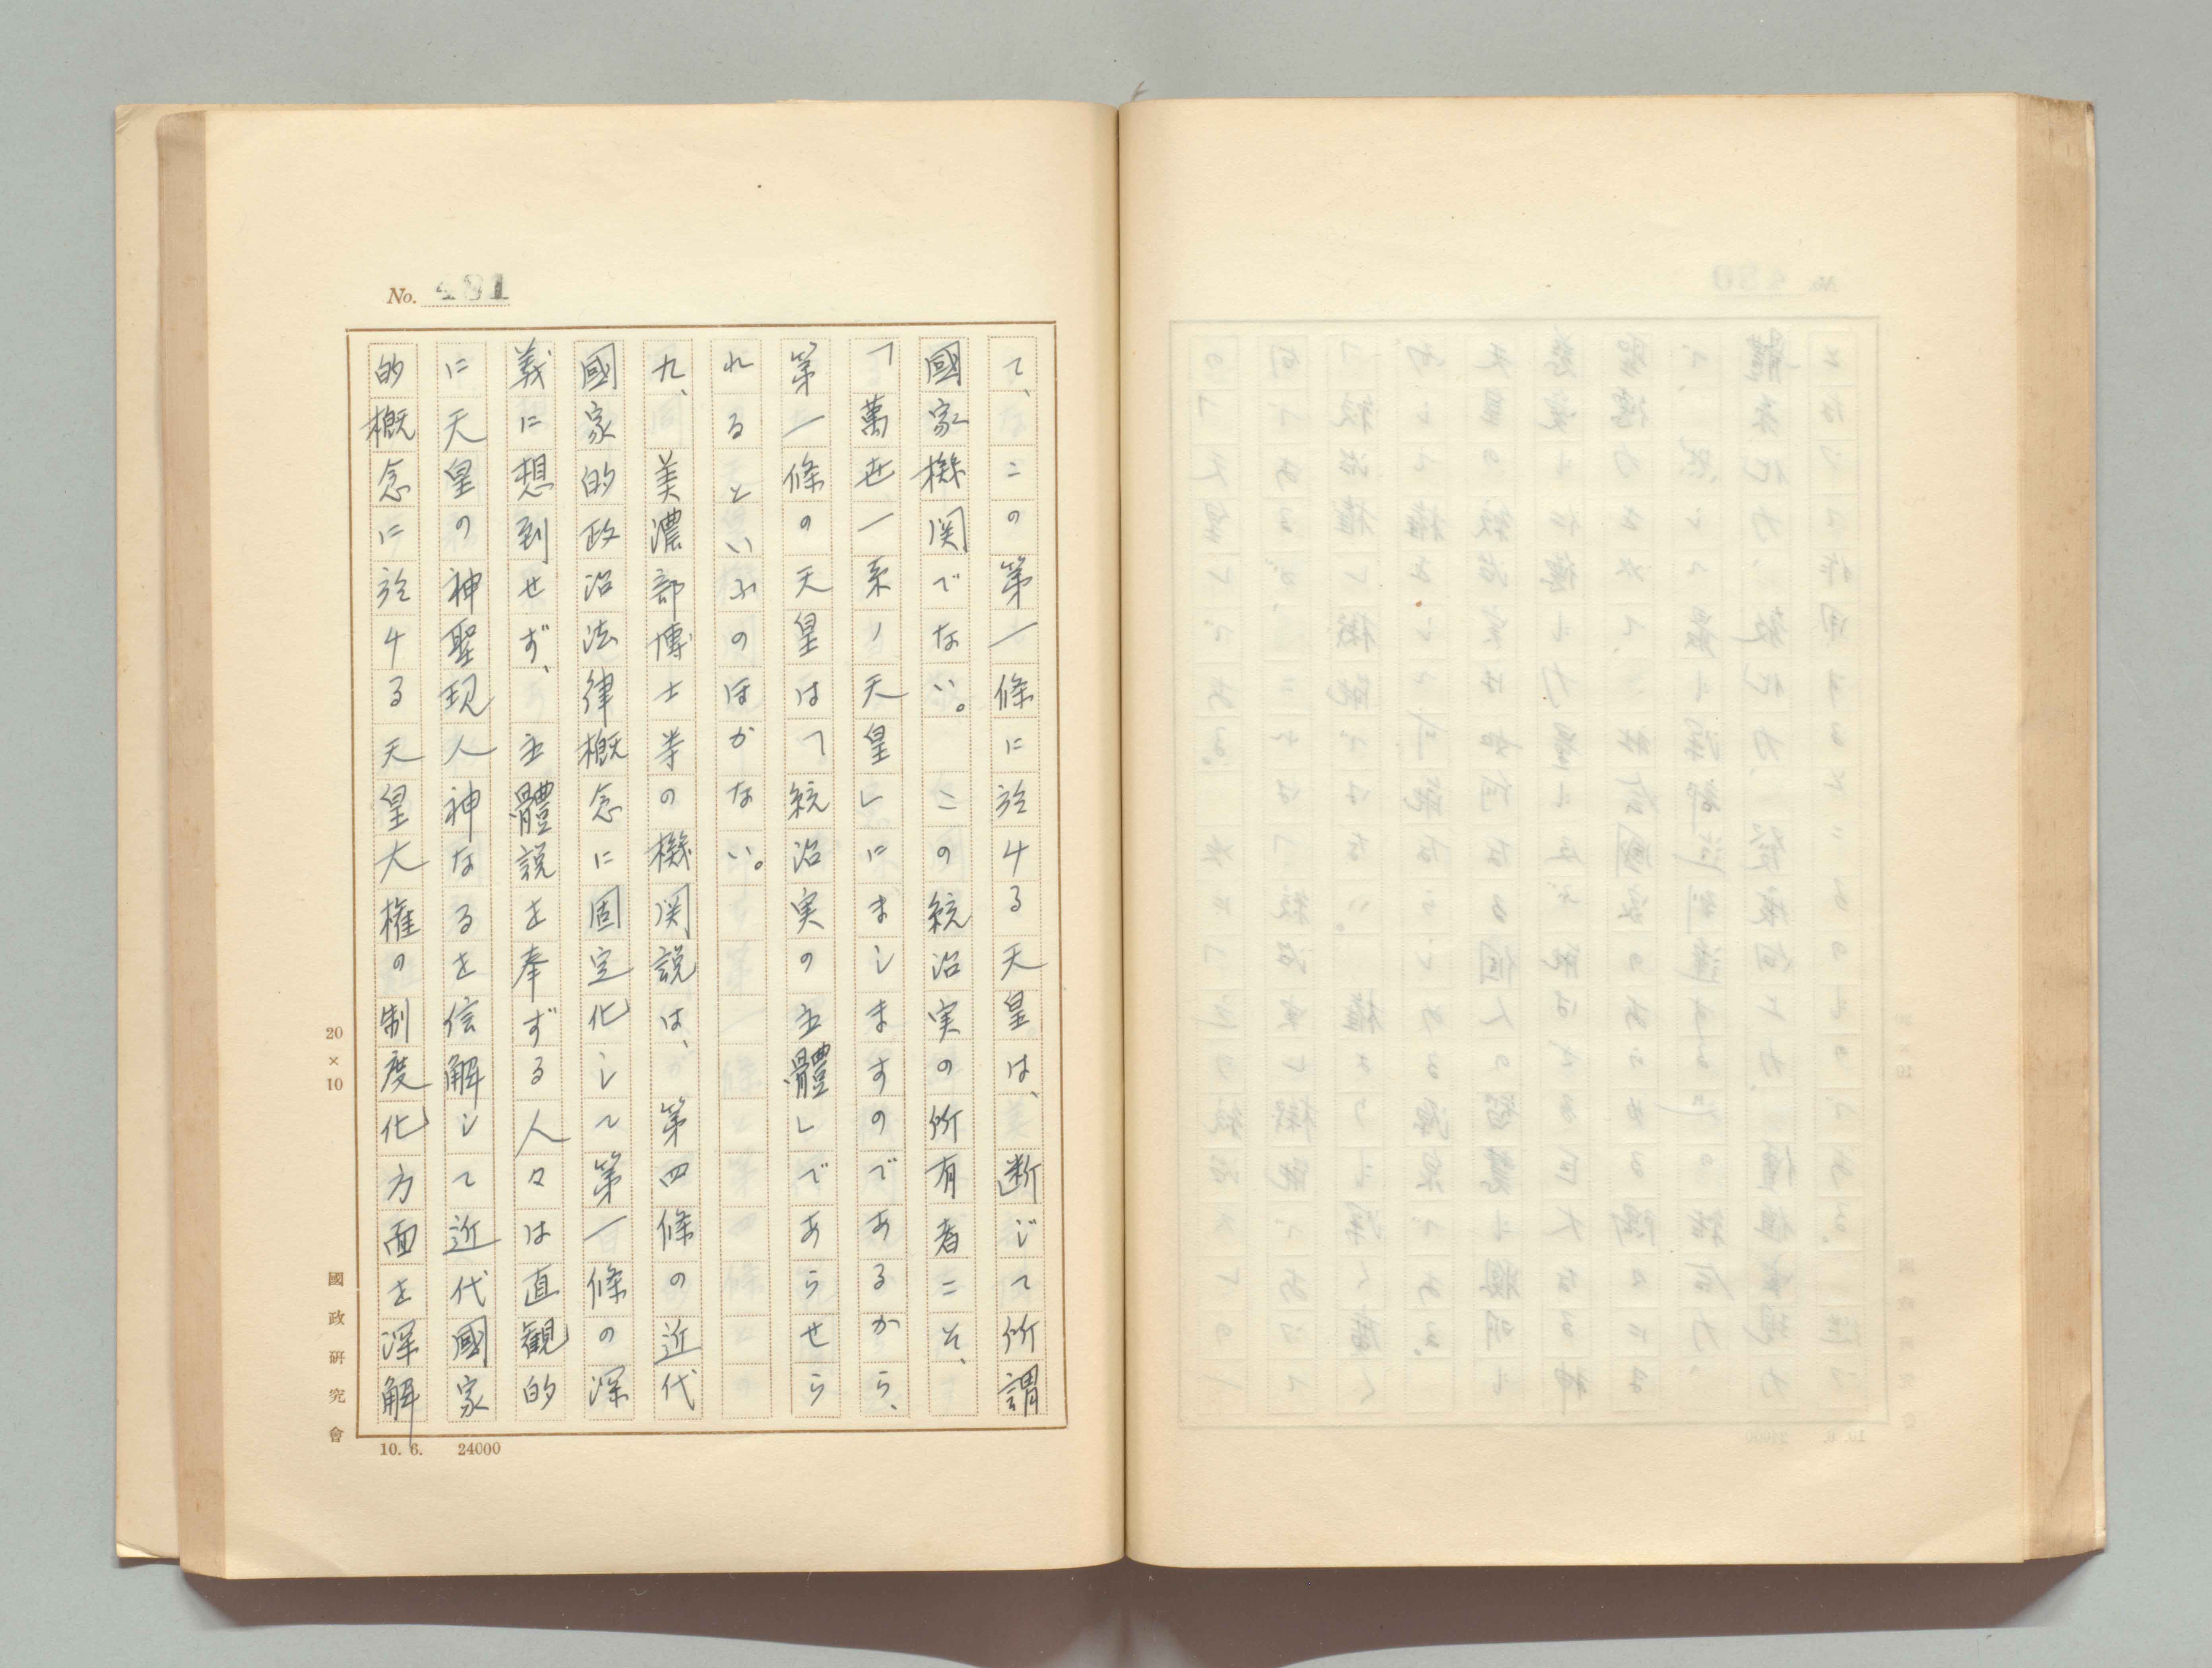 No. 481
て、この第一條に於ける天皇は、断じて所謂
國家機関でない。 この統治実の所有者こそ、
「萬世一系ノ天皇」にましますのであるから、
第一條の天皇は「統治実の主體」であらせら
れるといふのほかない。
九、美濃部博士等の機関説は、第四條の近代
國家的政治法律概念に固定化して第一條の深
義に想到せず、主體説を奉ずる人々は直観的
に天皇の神聖現人神なるを信解して近代國家
的概念に於ける天皇大権の制度化方面を深解
20×10
國政研究會
10. 6. 24000